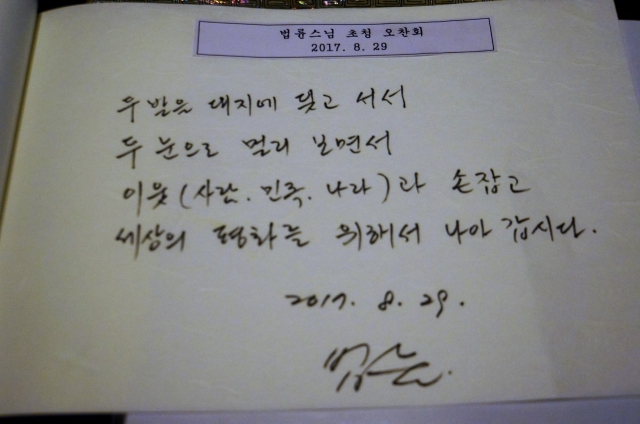 법륜스님 초청 오찬회
2017. 8. 29
두 발은 대지에 딪고 서서
두 눈으로 멀리 보면서
이웃(사람. 민족. 나라)과 손잡고
세상의 평화를 위해서 나아 갑시다.
2017. 8. 29.
법륜.